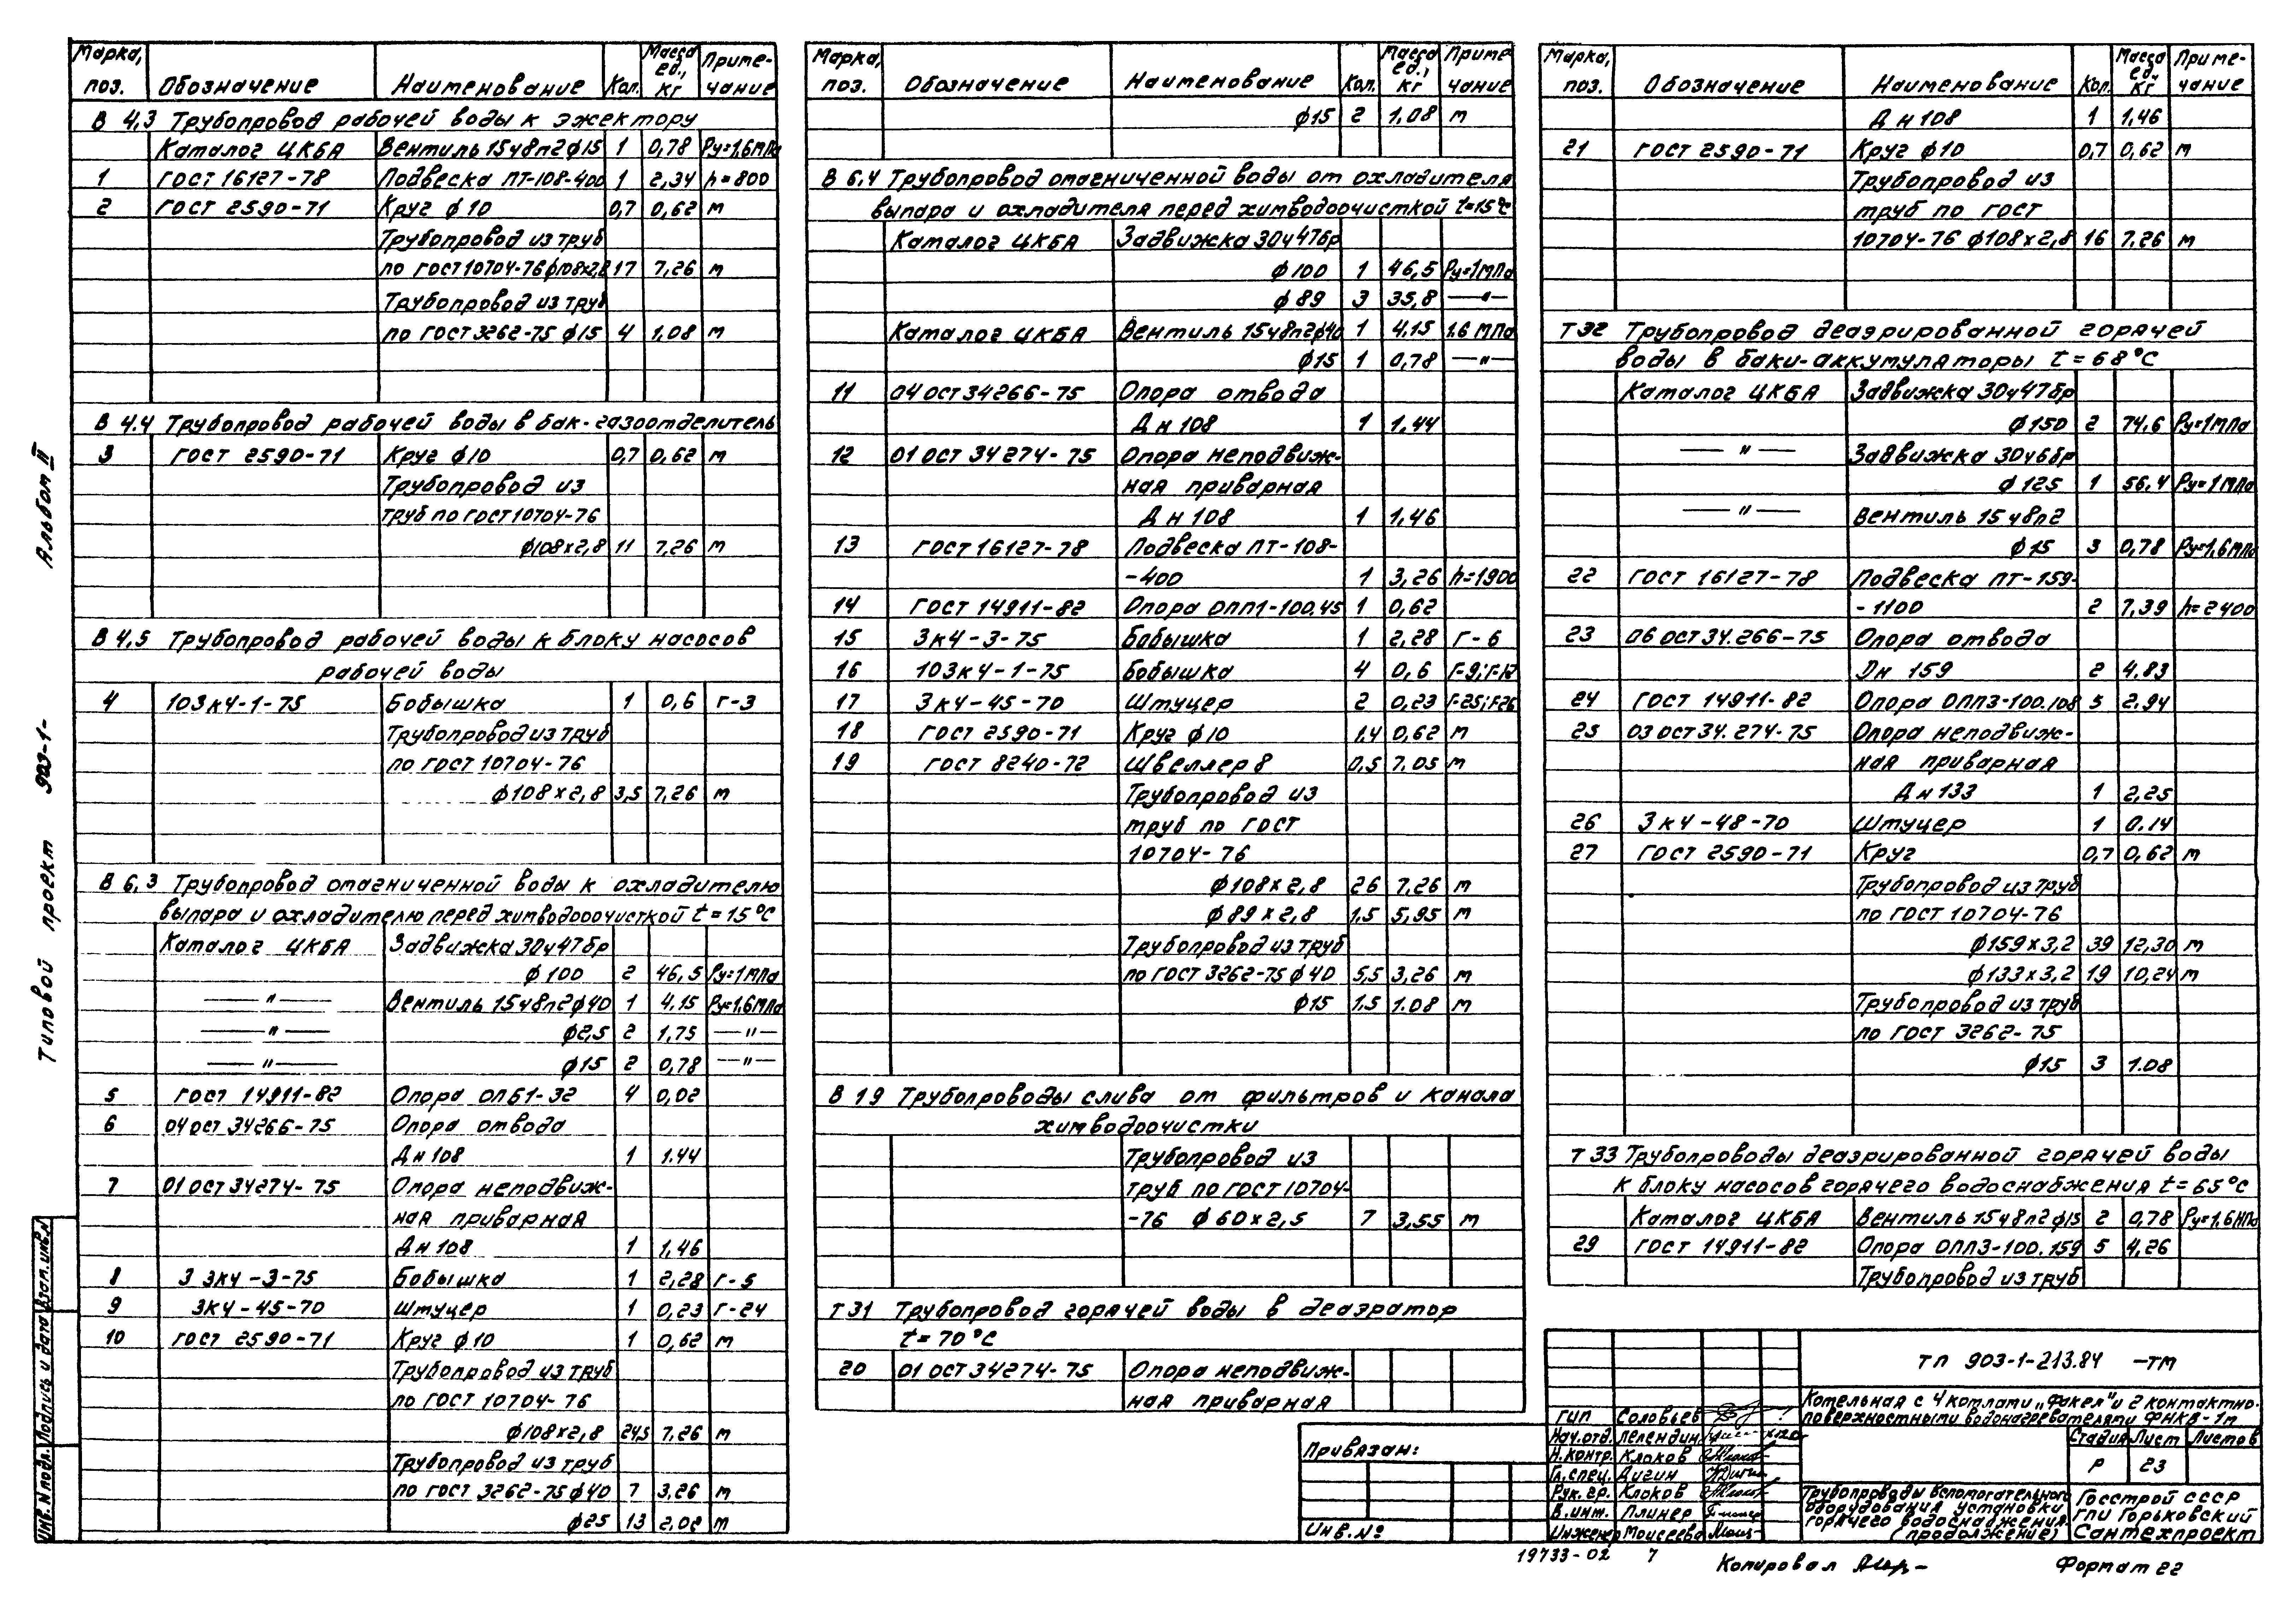 Марка, поз. Обозначение Наименование Кол. Масса ед., кг Приме-чание
В 4,3 Трубопровод рабочей воды к эжектору
Каталог ЦКБА Вентиль 15ч8п2 ф15 1 0,78 Ру=1,6МПа
1 ГОСТ 16127-78 Подвеска ПТ-108-400 1 2,34 h=800
2 ГОСТ 2590-71 Круг ф10 0,7 0,62 м
Трубопровод из труб
по ГОСТ10704-76ф108х2,8 17 7,26 м
Трубопровод из труб
по ГОСТ3262-75 ф15 4 1,08 м
В 4.4 Трубопровод рабочей воды в бак-газоотделитель
3 ГОСТ 2590-71 Круг ф10 0,7 0,62 м
Трубопровод из
труб по ГОСТ10704-76
ф108х2,8 11 7,26 м
В 4,5 Трубопровод рабочей воды к блоку насосов
рабочей воды
4 103к4-1-75 Бобышка 1 0,6 Г-3
Трубопровод из труб
по ГОСТ 10704-76
ф108х2,8 3,5 7,26 м
В 6,3 Трубопровод омагниченной воды к охладителю
выпара и охладителю перед химводоочисткой t=15°С
Каталог ЦКБА Задвижка 30ч47бр
ф100 2 46,5 Ру=1МПа
—"— Вентиль 15ч8п2ф40 1 4,15 Ру=1,6МПа
—"— ф2,5 2 1,75 —"—
—"— ф15 2 0,78 —"—
5 ГОСТ 14911-82 Опора ОПБ1-32 4 0,02
6 04 ОСТ 34266-75 Опора отвода
Дн 108 1 1.44
7 01 ОСТ 34274-75 Опора неподвиж-
ная приварная
Дн 108 1 1,46
8 3 3К4-3-75 Бобышка 1 2,28 Г-5
9 3К4-45-70 Штуцер 1 0,23 Г-24
10 ГОСТ 2590-71 Круг ф10 1 0,62 м
Трубопровод из труб
по ГОСТ 10704-76
ф108х2,8 24,5 7,26 м
Трубопровод из труб
по ГОСТ 3262-75ф40 7 3,26 м
ф25 13 2,02 м
Марка, поз. Обозначение Наименование Кол. Масса ед., кг Приме-чание
ф15 2 1,08 м
В 6,4 Трубопровод омагниченной воды от охладителя
выпара и охладителя перед химводоочисткой t=15°С
Каталог ЦКБА Задвижка 30ч47бр
ф100 1 46,5 Ру=1МПа
ф89 3 35,8 —"—
Каталог ЦКБА Вентиль 15ч8п2ф40 1 4,15 1.6 МПа
ф15 1 0,78 —"—
11 04 ОСТ 34266-75 Опора отвода
Дн 108 1 1,44
12 01 ОСТ 34274-75 Опора неподвиж-
ная приварная
Дн 108 1 1,46
13 ГОСТ 16127-78 Подвеска ПТ-108-
-400 1 3,26 h=1900
14 ГОСТ 14911-82 Опора ОПП1-100.45 1 0,62
15 3к4-3-75 Бобышка 1 2,28 Г-6
16 103к4-1-75 Бобышка 4 0,6 Г-9;Г-12
17 3к4-45-70 Штуцер 2 0,23 Г-25;Г-26
18 ГОСТ 2590-71 Круг ф10 1,4 0,62 м
19 ГОСТ 8240-72 Швеллер 8 0,5 7.05 м
Трубопровод из
труб по ГОСТ
10704-76
ф108х2,8 26 7,26 м
ф89х2,8 1,5 5,95 м
Трубопровод из труб
по ГОСТ 3262-75 ф40 5,5 3,26 м
ф15 1.5 1.08 м
В 19 Трубопроводы слива от фильтров и канала
химводоочистки
Трубопровод из
труб по ГОСТ 10704-
-76 ф60х2,5 7 3,55 м
Т31 Трубопровод горячей воды в деаэратор
t=70°С
20 01 ОСТ 34274-75 Опора неподвиж-
ная приварная
Марка, поз. Обозначение Наименование Кол. Масса ед., кг Приме-чание
Дн108 1 1,46
21 ГОСТ 2590-71 Круг ф10 0,7 0,62 м
Трубопровод из
труб по ГОСТ
10704-76 ф108х2,8 16 7,26 м
Т32 Трубопровод деаэрированной горячей
воды в баки-аккумуляторы t=68°С
Каталог ЦКБА Задвижка 30ч47бр
ф150 2 74,6 Ру=1МПа
—"— Задвижка 30ч6бр
ф125 1 56,4 Ру=1МПа
—"— Вентиль 15ч8п2
ф15 3 0,78 Ру=1,6МПа
22 ГОСТ 16127-78 Подвеска ПТ-159-
-1100 2 7,39 h=2400
23 06 ОСТ34.266-75 Опора отвода
Дн 159 2 4.83
24 ГОСТ 14911-82 Опора ОПП3-100.108 5 2,94
25 03 ОСТ34.274-75 Опора неподвиж-
ная приварная
Дн133 1 2,25
26 3к4-48-70 Штуцер 1 0.14
27 ГОСТ 2590-71 Круг 0,7 0,62 м
Трубопровод из труб
по ГОСТ 10704-76
ф159х3,2 39 12,30 м
ф133х3,2 19 10,24 м
Трубопровод из труб
по ГОСТ 3262-75
ф15 3 1.08
Т33 Трубопроводы деаэрированной горячей воды
к блоку насосов горячего водоснабжения t=65°С
Каталог ЦКБА Вентиль 15ч8п2ф15 2 0,78 Ру=1.6МПа
29 ГОСТ 14911-82 Опора ОПП3-100.159 5 4,26
Трубопровод из труб
Типовой проект 903-1- Альбом II
Инв.№подл. Подпись и дата Взсп.инв.№
Привязан:
Инв.№
ТП 903-1-213.84 -ТМ
Котельная с 4 котлами „Факел" и 2 контактно-
поверхностными водонагревателями ФНКВ-1м
ГИП Соловьев
Нач.отд. Лелендин
Н.контр. Клоков
Гл.спец. Дигин
Рук.гр. Клоков
В.инж. Плинер
Инженер Моисеева
Стадия Лист Листов
Р 23
Трубопроводы вспомогательного
оборудования установки
горячего водоснабжения
(продолжение)
Госстрой СССР
ГПИ Горьковский
Сантехпроект
19733-02 7
Копировал
Формат 22